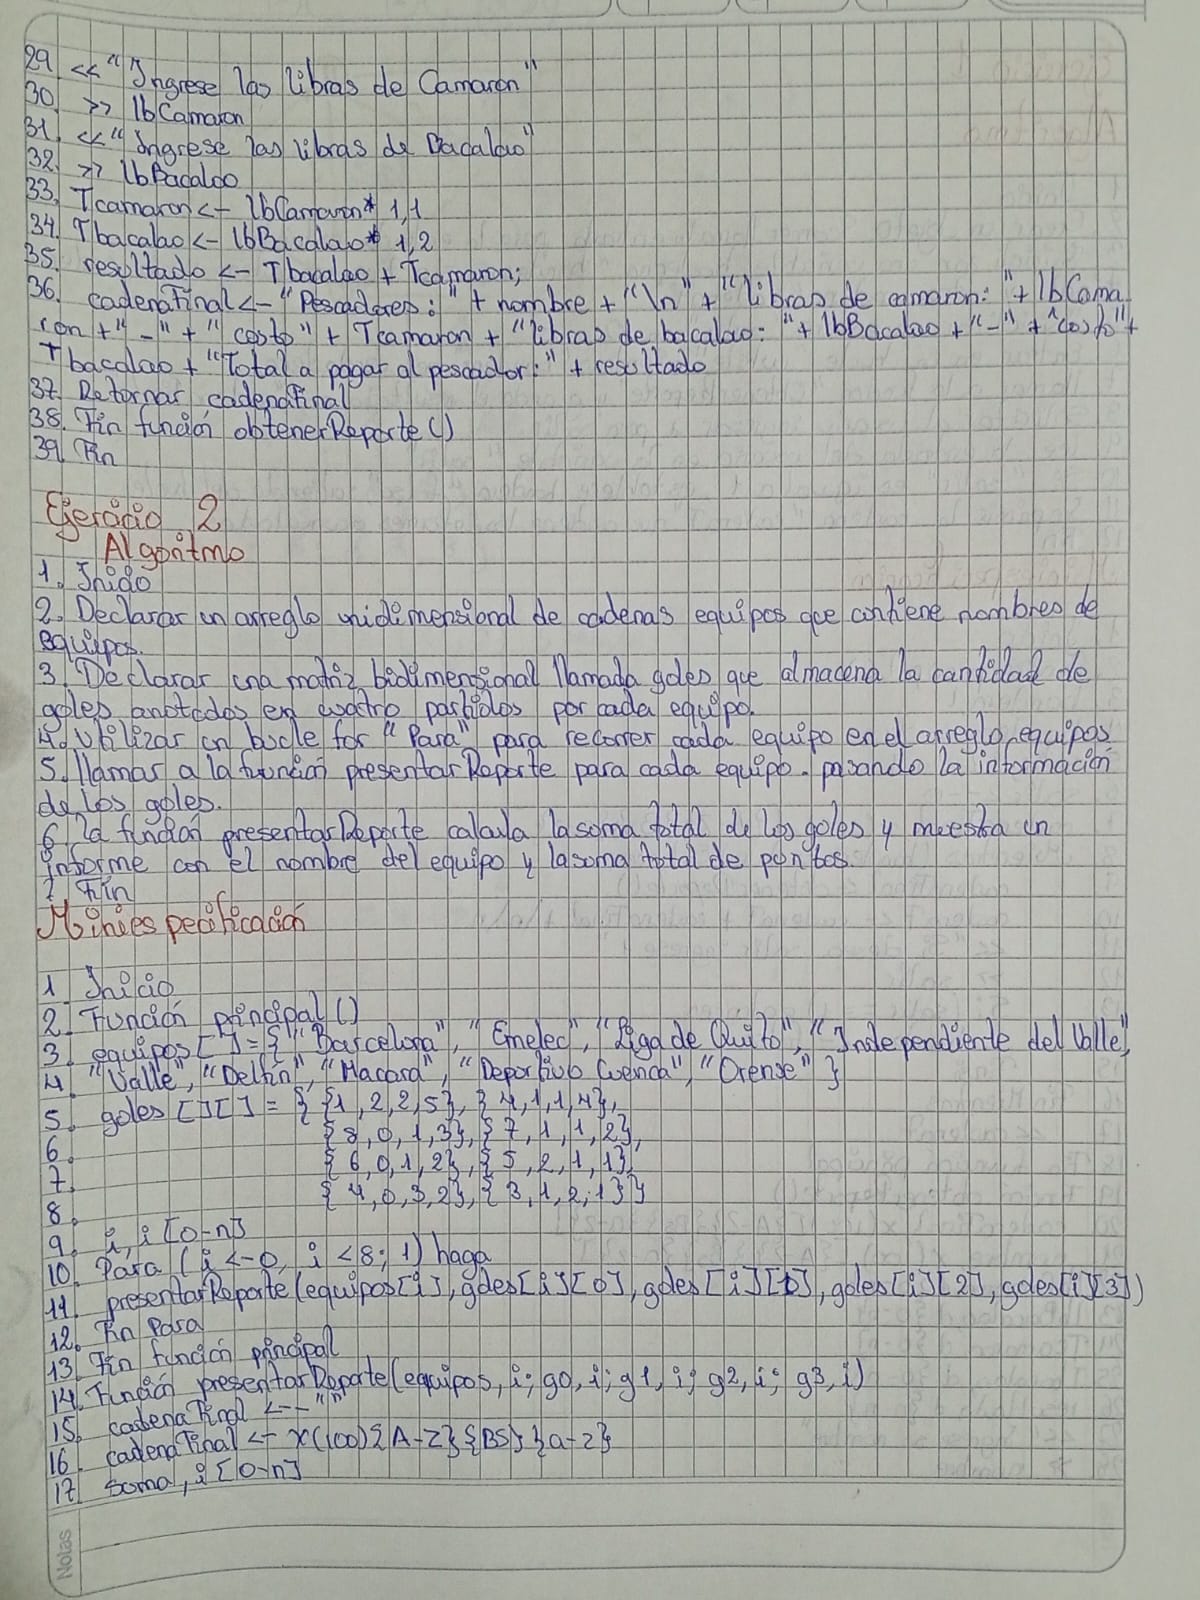 29. << "Ingrese las libras de Camaron"
30. >> lbCamaron
31. << "Ingrese las libras de Bacalao"
32. >> lbBacalao
33. Tcamaron <- lbCamaron * 1,1
34. Tbacalao <- lbBacalao * 1,2
35. resultado <- Tbacalao + Tcamaron;
36. cadenaFinal <- "Pescadores: " + nombre + "\n" + "libras de camaron: " + lbCama
ron + "-" + "costo" + Tcamaron + "libras de bacalao: " + lbBacalao + "-" + "costo" +
Tbacalao + "Total a pagar al pescador: " + resultado
37. Retornar cadenaFinal
38. Fin función obtenerReporte()
39. Fin
Ejercicio 2
Algoritmo
1. Inicio
2. Declarar un arreglo unidimensional de cadenas equipos que contiene nombres de
equipos.
3. Declarar una matriz bidimensional llamada goles que almacena la cantidad de
goles anotados en cuatro partidos por cada equipo.
4. Utilizar un bucle for "Para" para recorrer cada equipo en el arreglo equipos
5. llamar a la función presentarReporte para cada equipo. pasando la información
de los goles.
6. la función presentarReporte calcula la suma total de los goles y muestra un
informe con el nombre del equipo y la suma total de puntos.
7. Fin
Miniespecificación
1 Inicio
2. Función principal()
3. equipos[] = { "Barcelona", "Emelec", "Liga de Quito", "Independiente del Valle",
4. "Valle", "Delfín", "Macará", "Deportivo Cuenca", "Orense" }
5. goles [][] = { {1, 2, 2, 5}, {4, 1, 1, 4},
6. {8, 0, 1, 3}, {7, 1, 1, 2},
7. {6, 0, 1, 2}, {5, 2, 1, 1},
8. {4, 0, 3, 2}, {3, 1, 2, 1} }
9. i, i [0-n]
10. Para (i <- 0, i < 8; 1) haga
11. presentarReporte(equipos[i], goles[i][0], goles[i][1], goles[i][2], goles[i][3])
12. Fin Para
13. Fin función principal
14. Función presentarReporte(equipos, i; g0, i; g1, i; g2, i; g3, i)
15. cadenaFinal <-- ""
16. cadenaFinal <- x(100){A-Z}{BS}{a-z}
17. Suma, i [0-n]
Notas